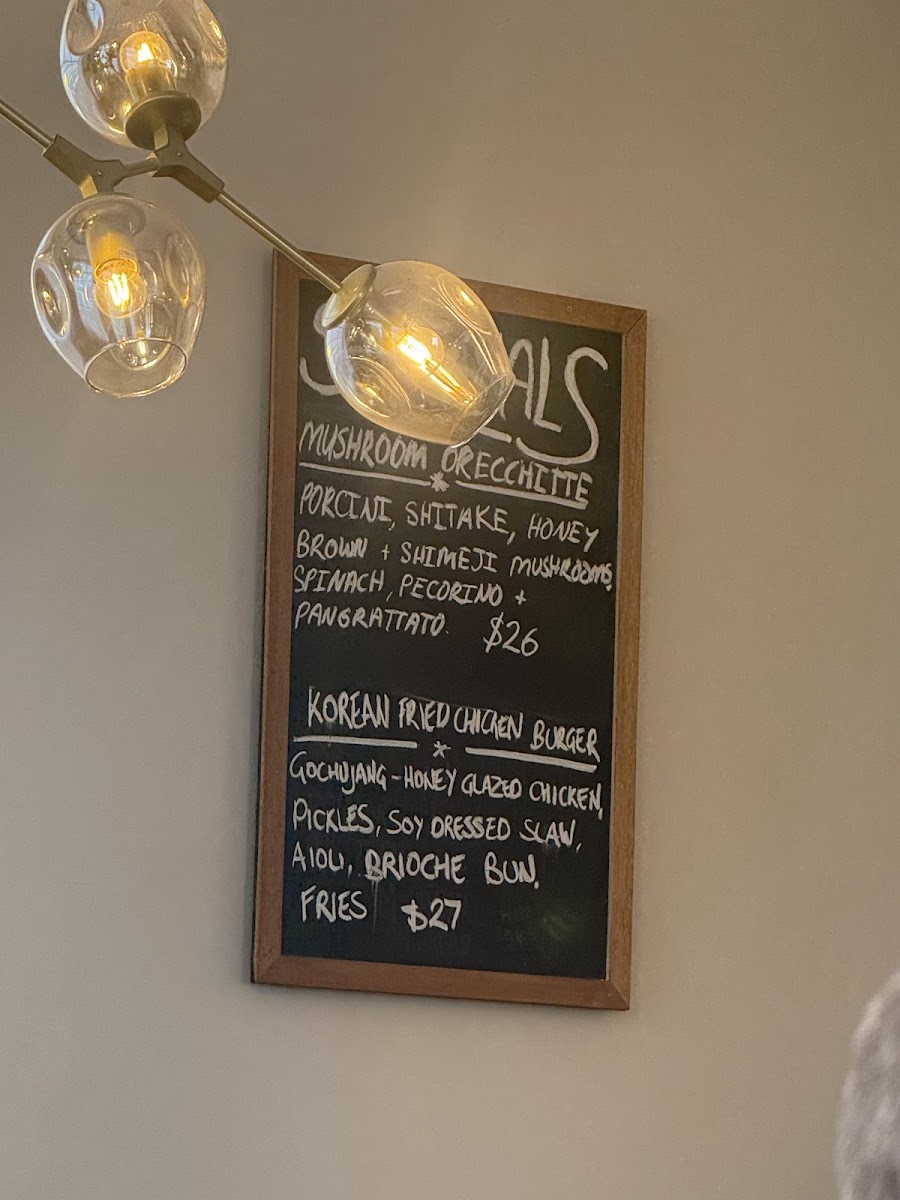 MUSHROOM ORECCHITTE
PORCINI, SHITAKE, HONEY
BROWN + SHIMEJI MUSHROOMS,
SPINACH, PECORINO +
PANGRATTATO. $26
KOREAN FRIED CHICKEN BURGER
GOCHUJANG-HONEY GLAZED CHICKEN,
PICKLES, SOY DRESSED SLAW,
AIOLI, BRIOCHE BUN,
FRIES $27